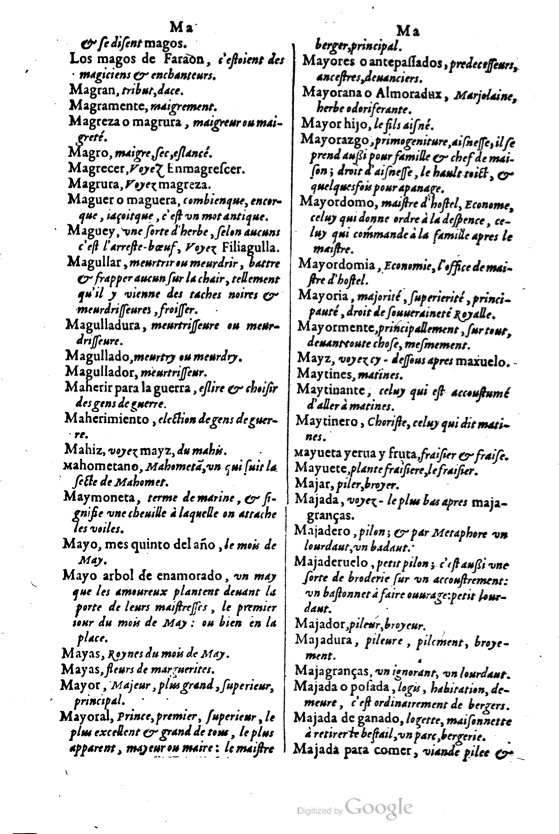 Ma
& se disent magos.
Los magos de Faraon, c'estoient des
magiciens & enchanteurs.
Magran, tribut, dace.
Magramente, maigrement.
Magreza o magrura, maigreur ou mai-
greté.
Magro, maigre, sec, eslancé.
Magrecer, Voyez Enmagrescer.
Magrura, Voyez magreza.
Maguer o maguera, combienque, encor-
que, iaçoitque, c'est un mot antique.
Maguey, vne sorte d'herbe, selon aucuns
c'est l'arreste-bœuf, Voyez Filiagulla.
Magullar, meurtrir ou meurdrir, battre
& frapper aucun sur la chair, tellement
qu'il y vienne des taches noires &
meurdrisseures, froisser.
Magulladura, meurtrisseure ou meur-
drisseure.
Magullado, meurtry ou meurdry.
Magullador, meurtrisseur.
Maherir para la guerra, eslire & choisir
des gens de guerre.
Maherimiento, election de gens de guer-
re.
Mahiz, voyez mayz, du mahis.
Mahometano, Mahometã, vn qui suit la
secte de Mahomet.
Maymoneta, terme de marine, & si-
gnifie vne cheuille à laquelle on attache
les voiles.
Mayo, mes quinto del año, le mois de
May.
Mayo arbol de enamorado, vn may
que les amoureux plantent deuant la
porte de leurs maistresses, le premier
iour du mois de May: ou bien en la
place.
Mayas, Roynes du mois de May.
Mayas, fleurs de marguerites.
Mayor, Majeur, plus grand, superieur,
principal.
Mayoral, Prince, premier, superieur, le
plus excellent & grand de tous, le plus
apparent, mayeur ou maire: le maistre
Ma
berger, principal.
Mayores o antepassados, predecesseurs,
ancestres, deuanciers.
Mayorana o Almoradux, Marjolaine,
herbe odoriferante.
Mayor hijo, le fils aisné.
Mayorazgo, primogeniture, aisnesse, il se
prend aussi pour famille & chef de mai-
son; droit d'aisnesse, le hault toict, &
quelquesfois pour apanage.
Mayordomo, maistre d'hostel, Econome,
celuy qui donne ordre à la despence, ce-
luy qui commãde à la famille apres le
maistre.
Mayordomia, Economie, l'office de mai-
stre d'hostel.
Mayoria, majorité, superierité, princi-
pauté, droit de souueraineté Royalle.
Mayormente, principallement, sur tout,
deuant toute chose, mesmement.
Mayz, voyez cy-dessous apres maxuelo.
Maytines, matines.
Maytinante, celuy qui est accoustumé
d'aller à matines.
Maytinero, Choriste, celuy qui dit mati-
nes.
Mayueta yerua y fruta, fraisier & fraise.
Mayuete, plante fraisiere, le fraisier.
Majar, piler, broyer.
Majada, voyez-le plus bas apres maja-
granças.
Majadero, pilon; & par Metaphore vn
lourdaut, vn badaut.
Majaderuelo, petit pilon; c'est aussi vne
sorte de broderie sur vn accoustrement:
vn bastonnet à faire ouurage: petit lour-
daut.
Majador, pileur, broyeur.
Majadura, pileure, pilement, broye-
ment.
Majagranças, vn ignorant, vn lourdaut.
Majada o posada, logis, habitation, de-
meure, c'est ordinairement de bergers.
Majada de ganado, logette, maisonnette
à retirer le bestail, vn parc, bergerie.
Majada para comer, viande pilee &
Digitized by Google